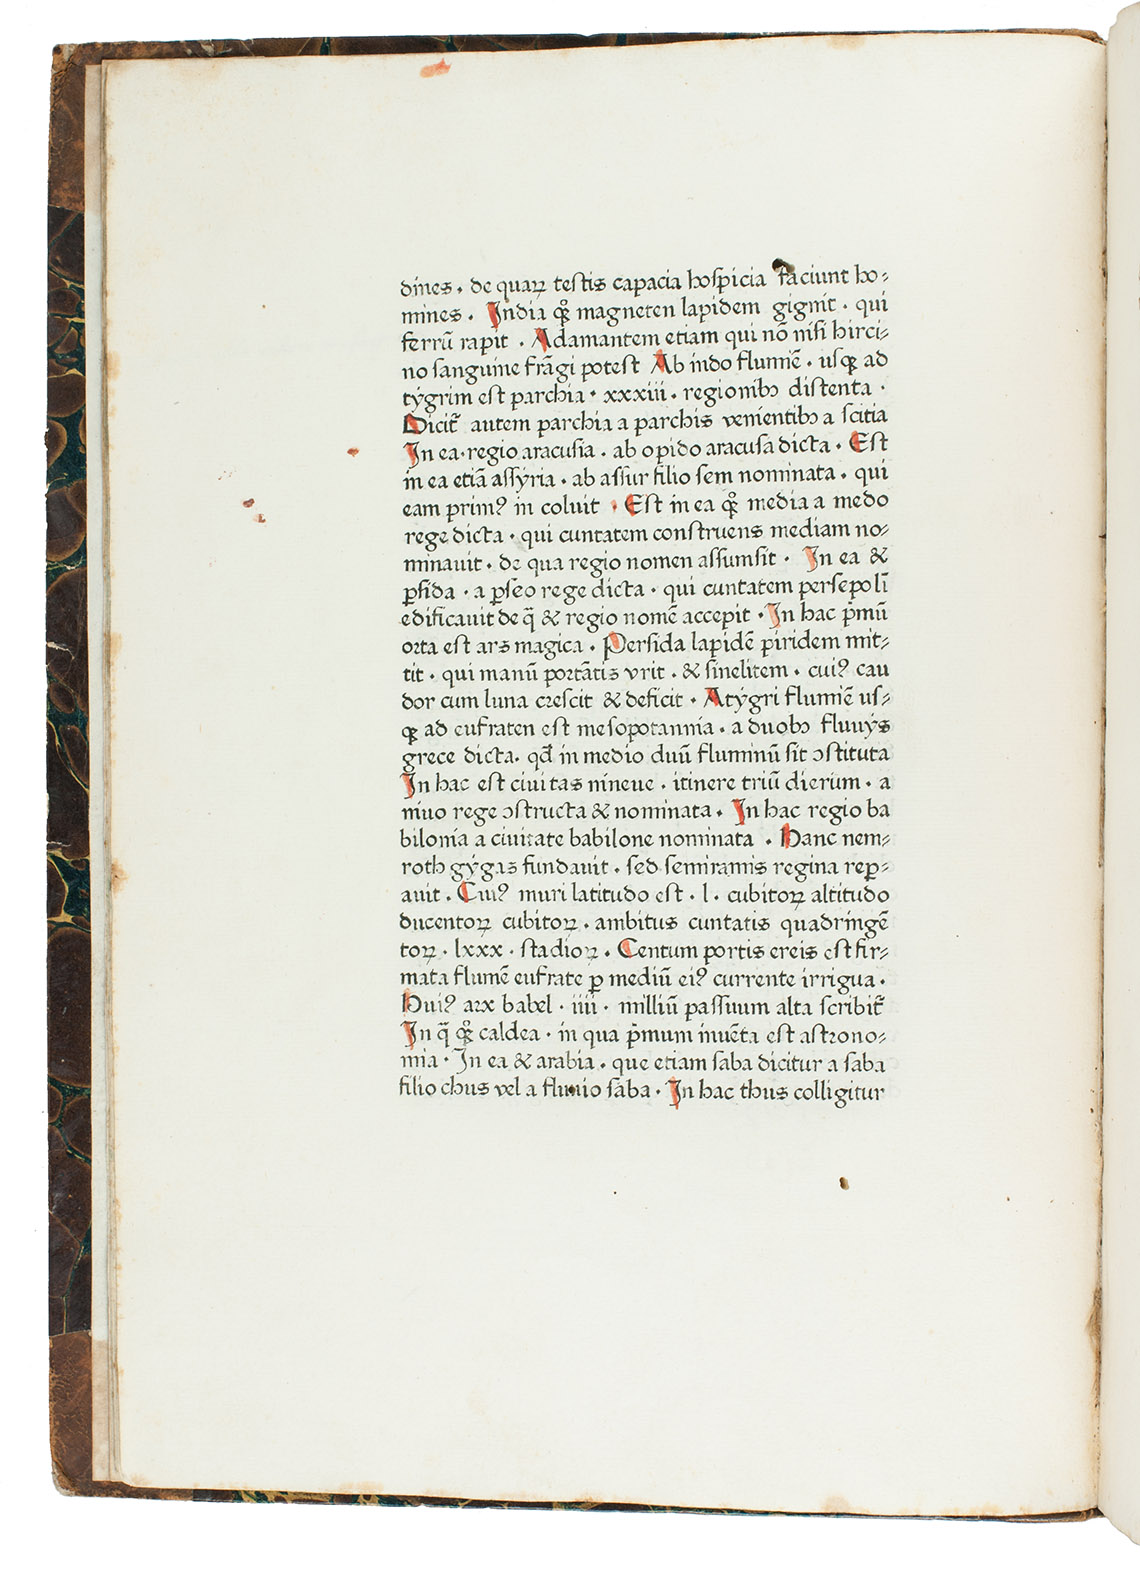 dines · de quaꝝ testis capacia hospicia faciunt ho⸗
mines · India qꝫ magneten lapidem gignit · qui
ferrū rapit · Adamantem etiam qui nō nisi hirci⸗
no sanguine frāgi potest Ab indo flumīe · usqꝫ ad
tÿgrim est parchia · xxxiii · regionibꝫ distenta ·
Dicit᷑ autem parchia a parchis venientibꝫ a scitia
In ea · regio aracusia · ab opido aracusa dicta · Est
in ea etiā assÿria · ab assur filio sem nominata · qui
eam primꝰ in coluit · Est in ea qꝫ media a medo
rege dicta · qui ciuitatem construens mediam no⸗
minauit · de qua regio nomen assumsit · In ea &
ꝑsida · a ꝑseo rege dicta · qui ciuitatem persepolī
edificauit de q̄ & regio nomē accepit · In hac p̄mū
orta est ars magica · Persida lapidē piridem mit⸗
tit · qui manū portātis vrit · & sinelitem · cuiꝰ cau
dor cum luna crescit & deficit · Atÿgri flumīe us⸗
qꝫ ad eufraten est mesopotannia · a duobꝫ fluuÿs
grece dicta · qđ in medio duū fluminū sit ↄstituta
In hac est ciuitas nineue · itinere triū dierum · a
niuo rege ↄstructa & nominata · In hac regio ba
bilonia a ciuitate babilone nominata · Hanc nem⸗
roth gÿgas fundauit · sed semiramis regina reꝑ⸗
auit · Cuiꝰ muri latitudo est · l · cubitoꝝ altitudo
ducentoꝝ cubitoꝝ · ambitus ciuitatis quadringē
toꝝ · lxxx · stadioꝝ · Centum portis ereis est fir⸗
mata flumē eufrate ꝑ mediū eiꝰ currente irrigua ·
Huiꝰ arx babel · iiii · milliū passuum alta scribit᷑
In q̄ qꝫ caldea · in qua p̄mum inuēta est astrono⸗
mia · In ea & arabia · que etiam saba dicitur a saba
filio chus vel a fluuio saba · In hac thus colligitur